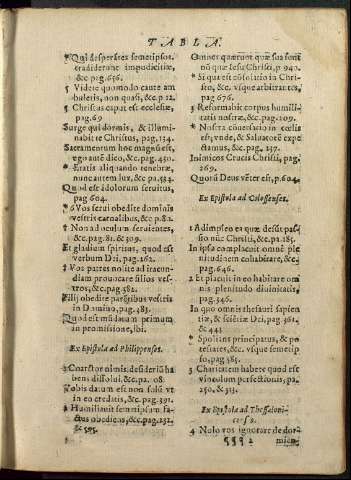 TABLA
*Qui desperãtes semetipsos,
tradiderunt impudicitiæ,
&c pag.656.
5 Videte quomodo caute am
buletis, non quasi, &c.p.12.
5 Christus caput est ecclesiæ,
pag.69
Surge qui dormis, & illumi-
nabit te Christus, pag.134.
Sacramentum hoc magnũ est,
ego autẽ dico, &c.pag.450.
*Eratis aliquando tenebræ,
nunc autem lux, &c pa.534.
Quod est idolorum seruitus,
pag 604.
*6 Vos serui obedite dominis
vestris carnalibus, &c p.82.
† Non ad oculum seruientes,
&c.pag.81.& 309.
Et gladium spiritus, quod est
verbum Dei, pag.162.
* Vos patres nolite ad iracun-
diam prouocare filios ves-
tros, &c pag.381.
Filij obedite parẽtibus vestris
in Domino, pag.383.
Quod est mãdatum primum
in promissione, ibi.
Ex Epistola ad Philippenses.
Coarctor nimis: desideriũ ha
bens dissolui, &c.pa. 08.
Vobis datum est non solũ vt
in eo creditis, &c.pag.391.
* Humiliauit semetipsum fa-
ctus obediens, &c.pag.252.
& 505.
Omnes quærunt quæ sua sunt
nõ quæ Iesu Christi, p 940.
* Si qua est cõsolatio in Chri-
sto, &c. vsque arbitrantes,
pag 676.
3 Reformabit corpus humili-
tatis nostræ, &c.pag.209.
* Nostra cõuersatio in cœlis
est, vnde, & Saluatorẽ expe-
ctamus, &c.pag. 137.
Inimicos Crucis Christi, pag.
269.
Quorũ Deus vẽter est, p.604.
Ex Epistola ad Colossenses.
1 Adimpleo ea quæ desũt pas-
siõ nũ: Christi, &c pa.185.
In ipso complacuit omnẽ ple
nitudinem cohabitare, &c.
pag.646.
Et placuit in eo habitare om
nis plenitudo diuinitatis,
pag.346.
In quo omnis thesauri sapien
tiæ, & scientiæ Dei, pag.361.
& 443
* Spolians principatus, & po
testates, &c. vsque semetip
so, pag.585.
3 Charitatem habete quod est
vinculum perfectionis, pa.
250.& 313.
Ex Epistola ad Thessaloni-
censes.
4 Nolo vos ignorare de dor-
§§§ 2 mien